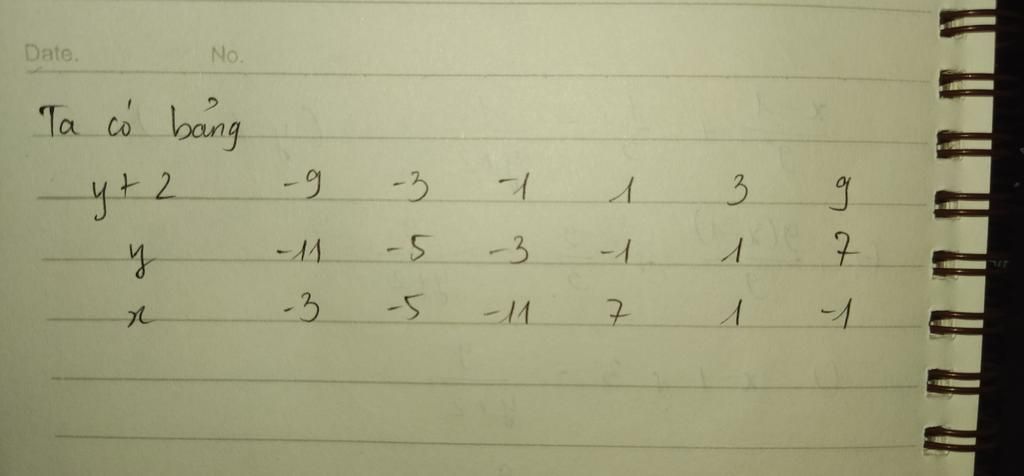 Date. No.
Ta có bảng
y+2 -9 -3 -1 1 3 9
y -11 -5 -3 -1 1 7
x -3 -5 -11 7 1 -1